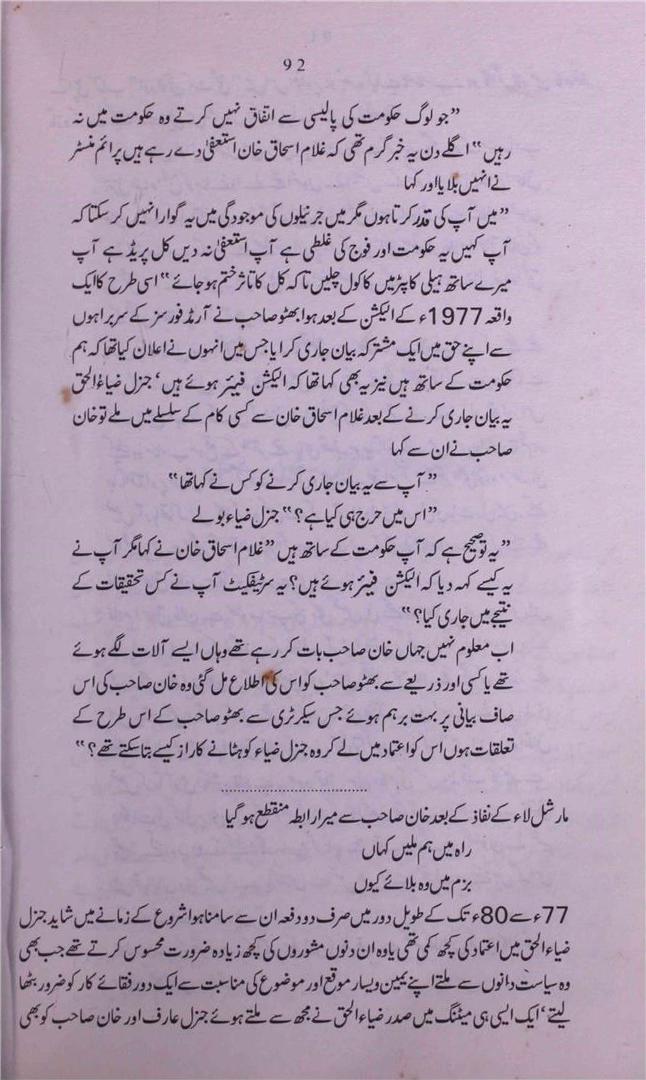 92
”جو لوگ حکومت کی پالیسی سے اتفاق نہیں کرتے وہ حکومت میں نہ
رہیں“ اگلے دن یہ خبر گرم تھی کہ غلام اسحاق خان استعفیٰ دے رہے ہیں پرائم منسٹر
نے انہیں بلایا اور کہا
”میں آپ کی قدر کرتا ہوں مگر میں جرنیلوں کی موجودگی میں یہ گوارا نہیں کر سکتا کہ
آپ کہیں یہ حکومت اور فوج کی غلطی ہے آپ استعفیٰ نہ دیں کل پریڈ ہے آپ
میرے ساتھ ہیلی کاپٹر میں کاکول چلیں تاکہ کل کا تاثر ختم ہو جائے“ اسی طرح کا ایک
واقعہ 1977ء کے الیکشن کے بعد ہوا بھٹو صاحب نے آرمڈ فورسز کے سربراہوں
سے اپنے حق میں ایک مشترکہ بیان جاری کرایا جس میں انہوں نے اعلان کیا تھا کہ ہم
حکومت کے ساتھ ہیں نیز یہ بھی کہا تھا کہ الیکشن فیئر ہوئے ہیں‘ جنرل ضیاءُ الحق
یہ بیان جاری کرنے کے بعد غلام اسحاق خان سے کسی کام کے سلسلے میں ملے تو خان
صاحب نے ان سے کہا
”آپ سے یہ بیان جاری کرنے کو کس نے کہا تھا“
”اس میں حرج ہی کیا ہے؟“ جنرل ضیاء بولے
”یہ تو صحیح ہے کہ آپ حکومت کے ساتھ ہیں“ غلام اسحاق خان نے کہا مگر آپ نے
یہ کیسے کہہ دیا کہ الیکشن فیئر ہوئے ہیں؟ یہ سرٹیفکیٹ آپ نے کس تحقیقات کے
نتیجے میں جاری کیا؟“
اب معلوم نہیں جہاں خان صاحب بات کر رہے تھے وہاں ایسے آلات لگے ہوئے
تھے یا کسی اور ذریعے سے بھٹو صاحب کو اس کی اطلاع مل گئی وہ خان صاحب کی اس
صاف بیانی پر بہت برہم ہوئے جس سیکرٹری سے بھٹو صاحب کے اس طرح کے
تعلقات ہوں اس کو اعتماد میں لے کر وہ جنرل ضیاء کو ہٹانے کا راز کیسے بتا سکتے تھے؟“
مارشل لاء کے نفاذ کے بعد خان صاحب سے میرا رابطہ منقطع ہو گیا
راہ میں ہم ملیں کہاں
بزم میں وہ بلائے کیوں
77ء سے 80ء تک کے طویل دور میں صرف دو دفعہ ان سے سامنا ہوا شروع کے زمانے میں شاید جنرل
ضیاءُ الحق میں اعتماد کی کچھ کمی تھی یا وہ ان دنوں مشوروں کی کچھ زیادہ ضرورت محسوس کرتے تھے جب بھی
وہ سیاست دانوں سے ملتے اپنے یمین ویسار موقع اور موضوع کی مناسبت سے ایک دو رفقائے کار کو ضرور بٹھا
لیتے‘ ایک ایسی ہی میٹنگ میں صدر ضیاءُ الحق نے مجھ سے ملتے ہوئے جنرل عارف اور خان صاحب کو بھی